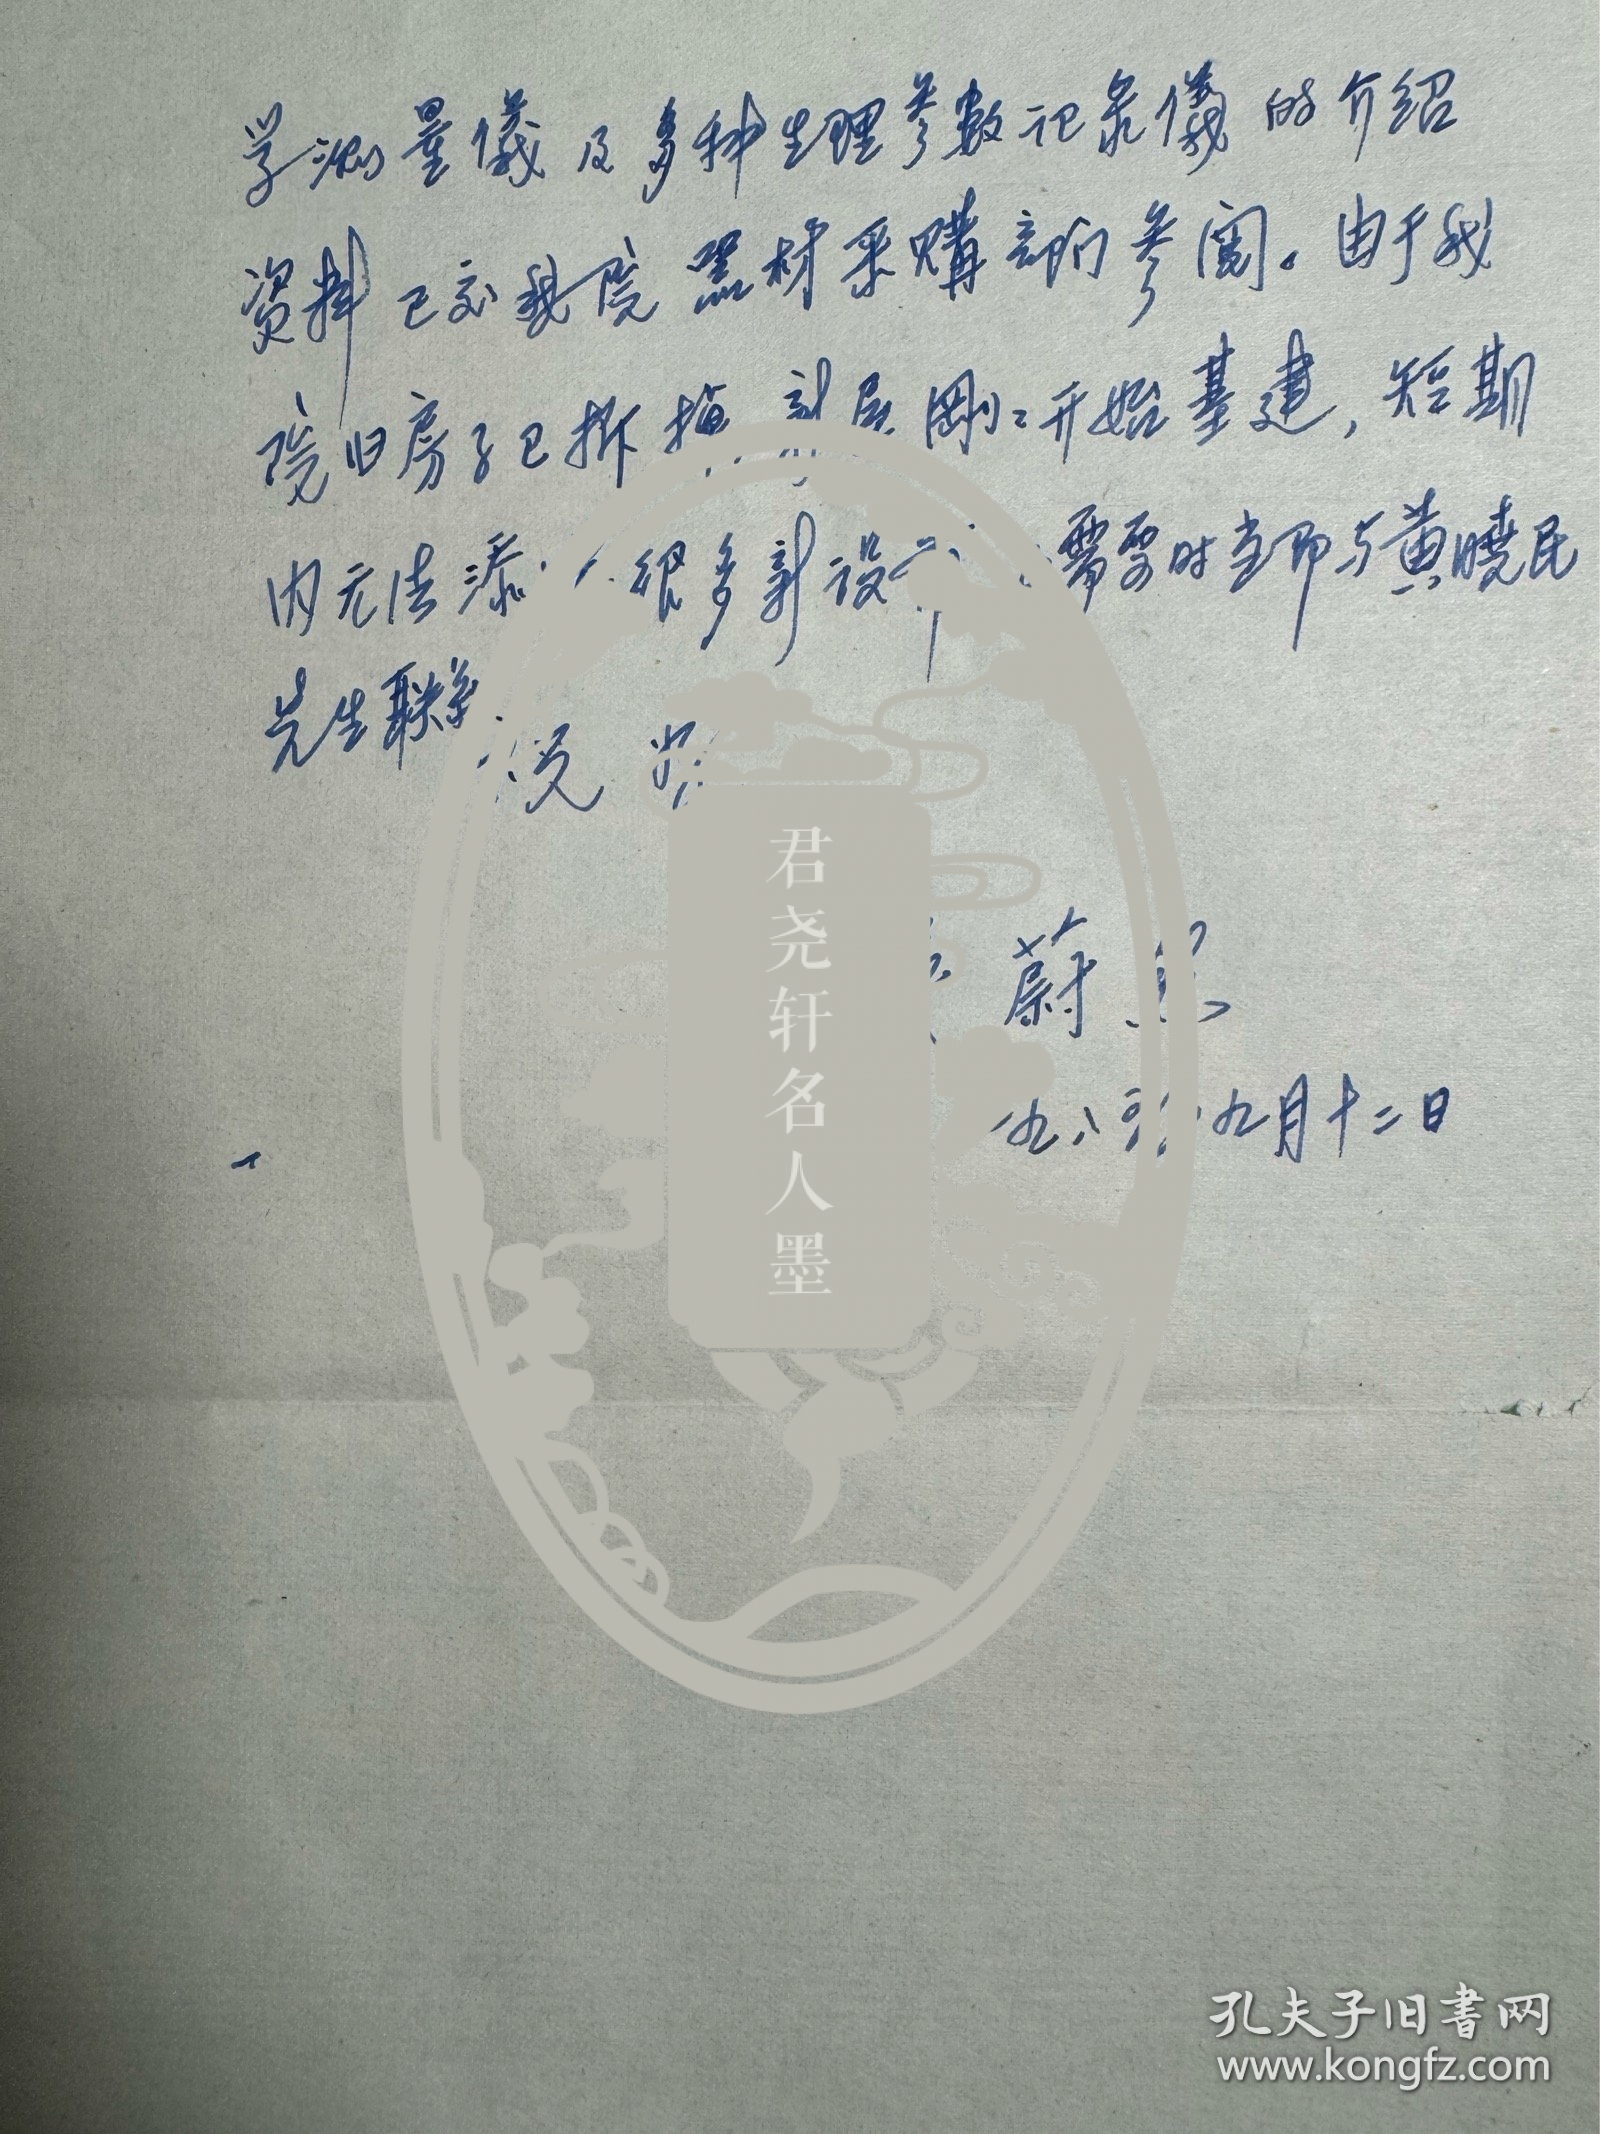 学测量儀及多种生理参数记录儀的介绍
资料已交我院器材采購部门参阅。由于我
院旧房子已拆掉,新屋剛々开始基建,短期
内无法添很多新设需要时当即与黄曉民
先生联系.
祝 好
蔚
一九八五年九月十二日
君尧轩名人墨
孔夫子旧書网
www.kongfz.com